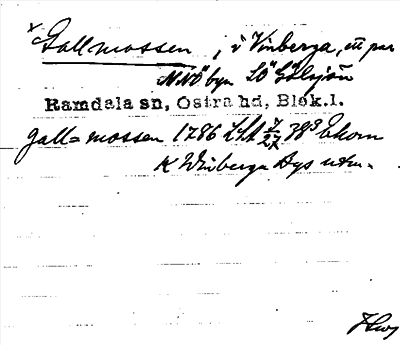 x Gallmossen, i Vinberga, ett par
NNÖ byn SÖ Gölsjön
Ramdala sn, Östra hd, Blek.l.
gall-mossen 1786 LSA 38³ Ekorn
K Winberga Ägs utm.